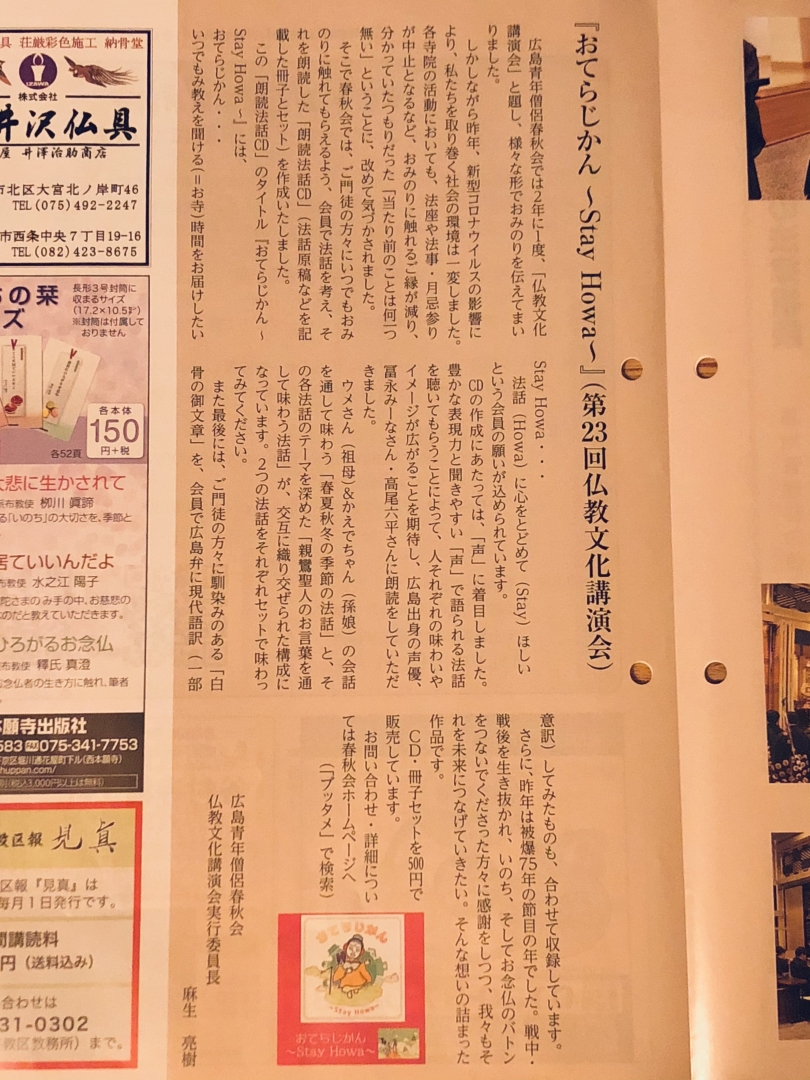 『おてらじかん ～Stay Howa～』(第23回仏教文化講演会)
広島青年僧侶春秋会では２年に１度、「仏教文化
講演会」と題し、様々な形でおみのりを伝えてまい
りました。
しかしながら昨年、新型コロナウイルスの影響に
より、私たちを取り巻く社会の環境は一変しました。
各寺院の活動においても、法座や法事・月忌参り
が中止となるなど、おみのりに触れるご縁が減り、
分かっていたつもりだった「当たり前のことは何一つ
無い」ということに、改めて気づかされました。
そこで春秋会では、ご門徒の方々にいつでもおみ
のりに触れてもらえるよう、会員で法話を考え、そ
れを朗読した「朗読法話CD」（法話原稿などを記
載した冊子とセット）を作成いたしました。
この「朗読法話CD」のタイトル『おてらじかん ～
Stay Howa～』には、
おてらじかん・・・
いつでもみ教えを聞ける(＝お寺)時間をお届けしたい
Stay Howa・・・
法話（Howa）に心をとどめて（Stay）ほしい
という会員の願いが込められています。
CDの作成にあたっては、「声」に着目しました。
豊かな表現力と聞きやすい「声」で語られる法話
を聴いてもらうことによって、人それぞれの味わいや
イメージが広がることを期待し、広島出身の声優、
冨永みーなさん・高尾六平さんに朗読をしていただ
きました。
ウメさん（祖母）＆かえでちゃん（孫娘）の会話
を通して味わう「春夏秋冬の季節の法話」と、そ
の各法話のテーマを深めた「親鸞聖人のお言葉を通
して味わう法話」が、交互に織り交ぜられた構成に
なっています。２つの法話をそれぞれセットで味わっ
てみてください。
また最後には、ご門徒の方々に馴染みのある「白
骨の御文章」を、会員で広島弁に現代語訳（一部
意訳）してみたものも、合わせて収録しています。
さらに、昨年は被爆75年の節目の年でした。戦中・
戦後を生き抜かれ、いのち、そしてお念仏のバトン
をつないでくださった方々に感謝をしつつ、我々もそ
れを未来につなげていきたい。そんな想いの詰まった
作品です。
ＣＤ・冊子セットを500円で
販売しています。
お問い合わせ・詳細につい
ては春秋会ホームページへ
（「ブッタメ」で検索）
広島青年僧侶春秋会
仏教文化講演会実行委員長
麻生 亮樹
おてらじかん
～Stay Howa～
おてらじかん
～Stay Howa～
具 荘厳彩色施工 納骨堂
IZAWA
株式会社
井沢仏具
屋 井澤治助商店
市北区大宮北ノ岸町46
TEL(075)492-2247
市西条中央７丁目19-16
TEL(082)423-8675
の栞
ズ
長形３号封筒に
収まるサイズ
(17.2×10.5㌢)
※封筒は付属して
おりません
各本体
150
円+税
各52頁
大悲に生かされて
布教使 栁川 眞諦
る「いのち」の大切さを、季節と
居ていいんだよ
布教使 水之江 陽子
陀さまのみ手の中、お慈悲の
のだと教えていただきます。
ひろがるお念仏
布教使 釋氏 真澄
念仏者の生き方に触れ、筆者
本願寺出版社
583 FAX 075-341-7753
下京区堀川通花屋町下ル(西本願寺)
huppan.com/
教区報 見真
区報『見真』は
毎月１日発行です。
間購読料
円（送料込み）
合わせは
31-0302
教区教務所）まで。